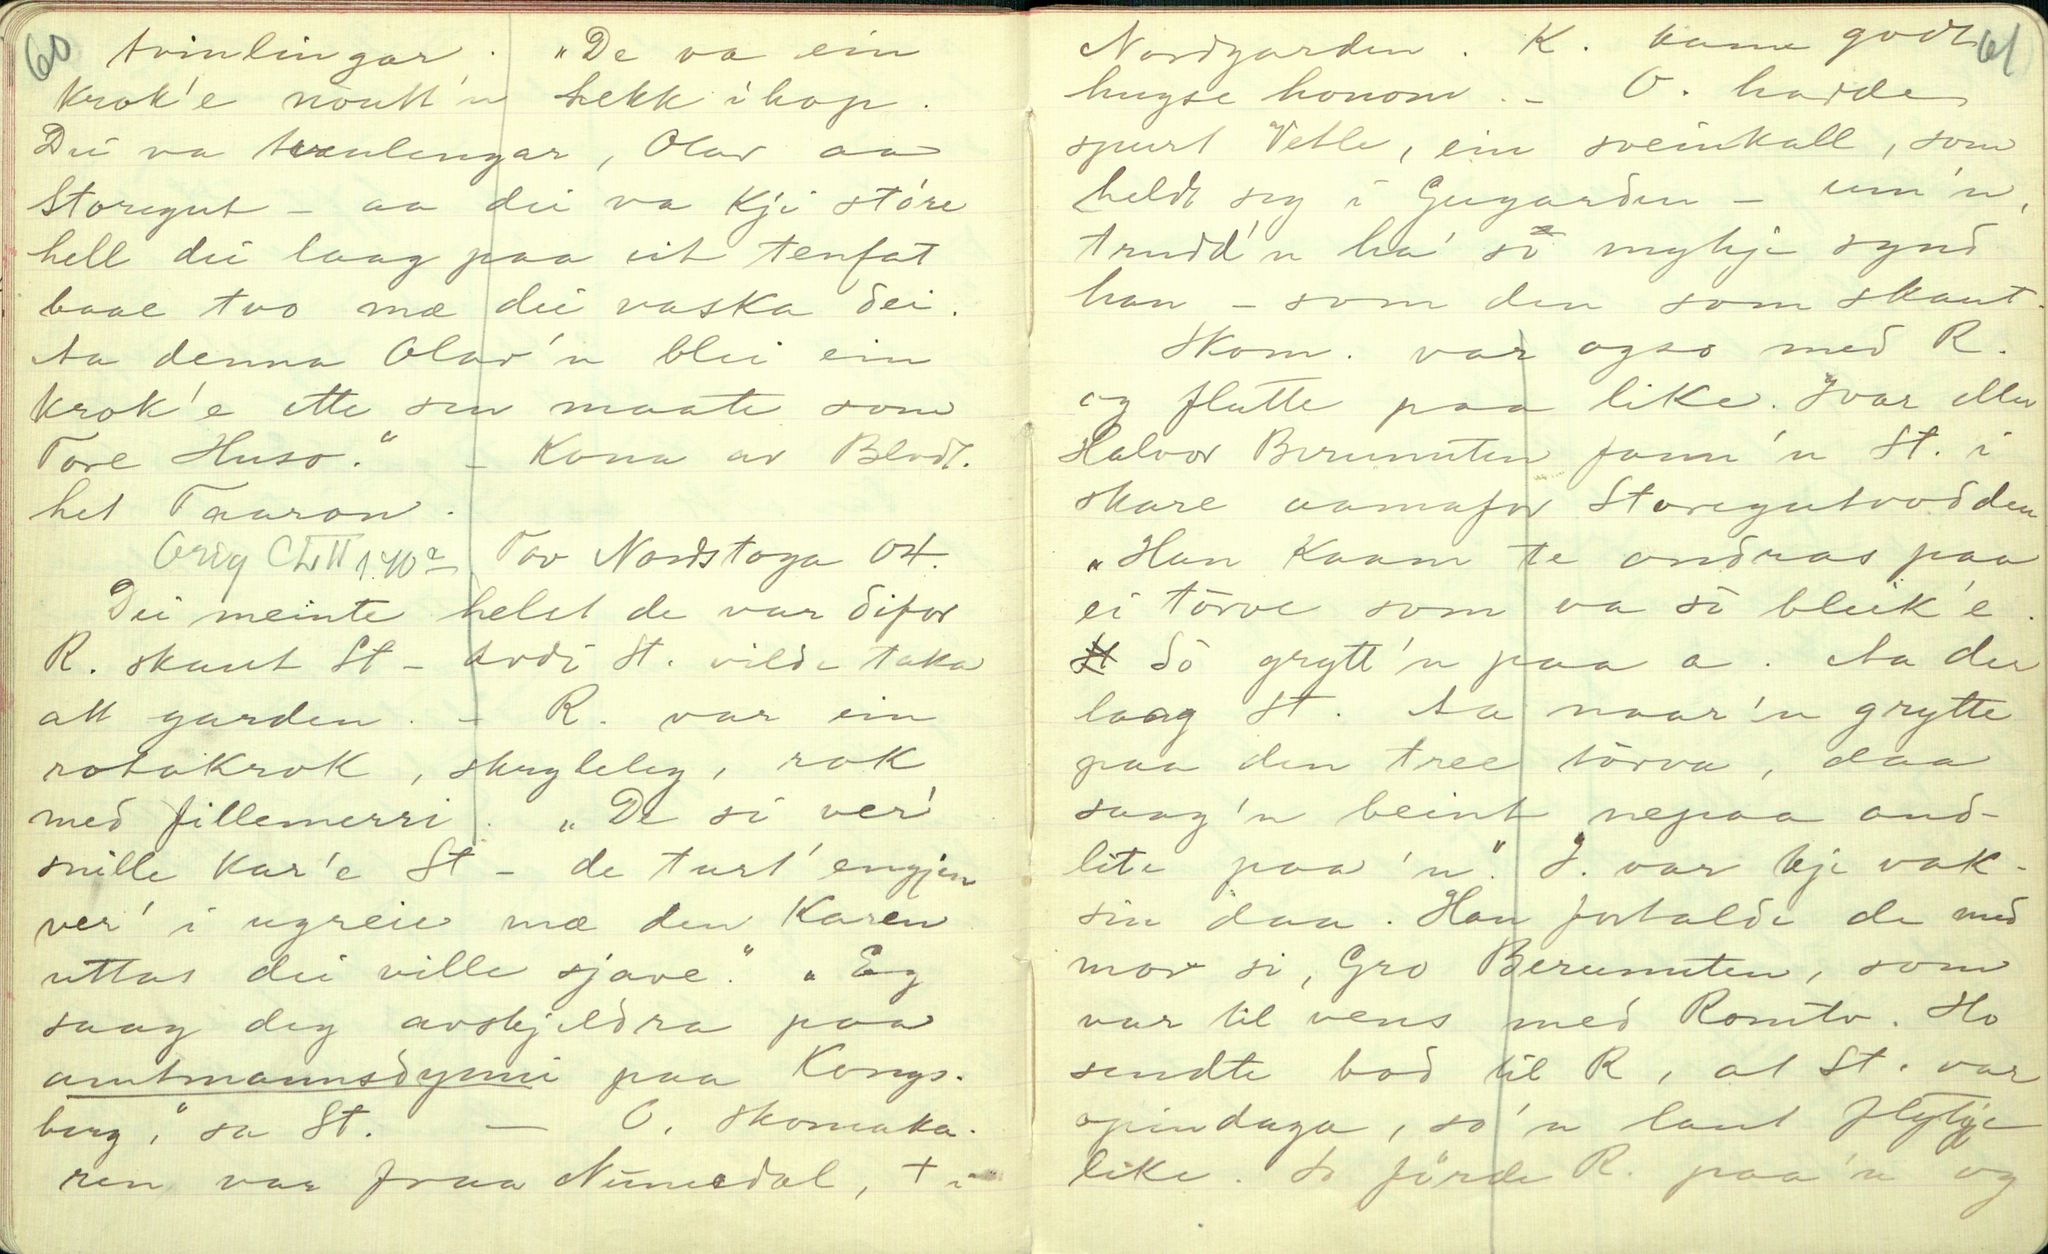 60
tvinlingar. "De va ein
krok'e nòutt'n hekk ihop.
Dei va tvenlengar, Olav aa
Storegut – aa dei va kji støre
hell dei laag paa eit tenfat
baae tvo mæ dei vaska dei.
Aa denna Olav'n blei ein
krok'e ette sen maate som
Tore Huso." – Kona av Blodt.
het Taaron.
Orig CLII 140 Tov Nordstoga 04.
Dei meinte helst de var difor
R. skaut St – avdi St. vilde taka
att garden. – R. var ein
rotakrok, skrybeleg, rak
med fillemerri. "De si ver'
snille kar'e St – de turt' engjen
ver' i ugreie mæ den karen
uttas dei ville sjave." "Eg
saag deg avskjeldra paa
amtmannsdynni paa Kongs-
berg," sa St. — O. Skomaka-
ren var fraa Numedal, + i
61
Nordgarden. K. kann godt
hugse honom. – O. hadde
spurt Vetle, ein sveinkall, som
heldt seg i Gugarden – um'n,
trudd'n ha' so mykje synd
han – som den som skaut.
Skom. var ogso med R.
og flutte paa like. Ivar eller
Halvor Berunuten fann'n St. i
skare aamafor Storegutvodden
"Han kaam te ondras paa
ei törve som va so bleik'e.
Sò grytt'n paa a. Aa der
laag St. Aa naar'n grytte
paa den tree törva, daa
saag'n beint nepaa and-
lite paa'n." I. var kje vak-
sin daa. Han fortalde de med
mor si, Gro Berunuten, som
var til vens med Romtv. Ho
sendte bod til R, at St. var
opindaga, so'n laut flytje
like. So förde R. paa'n og